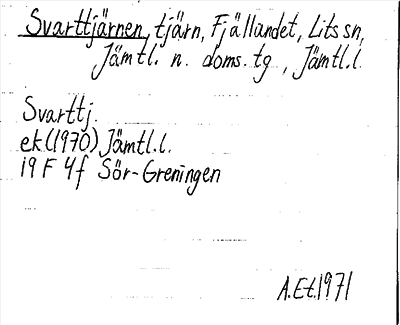 Svarttjärnen, tjärn, Fjällandet, Lits sn,
Jämtl. n. doms.tg, Jämtl.l.
Svarttj.
ek(1970) Jämtl.l.
19 F 4f Sör-Greningen
A.Et.1971